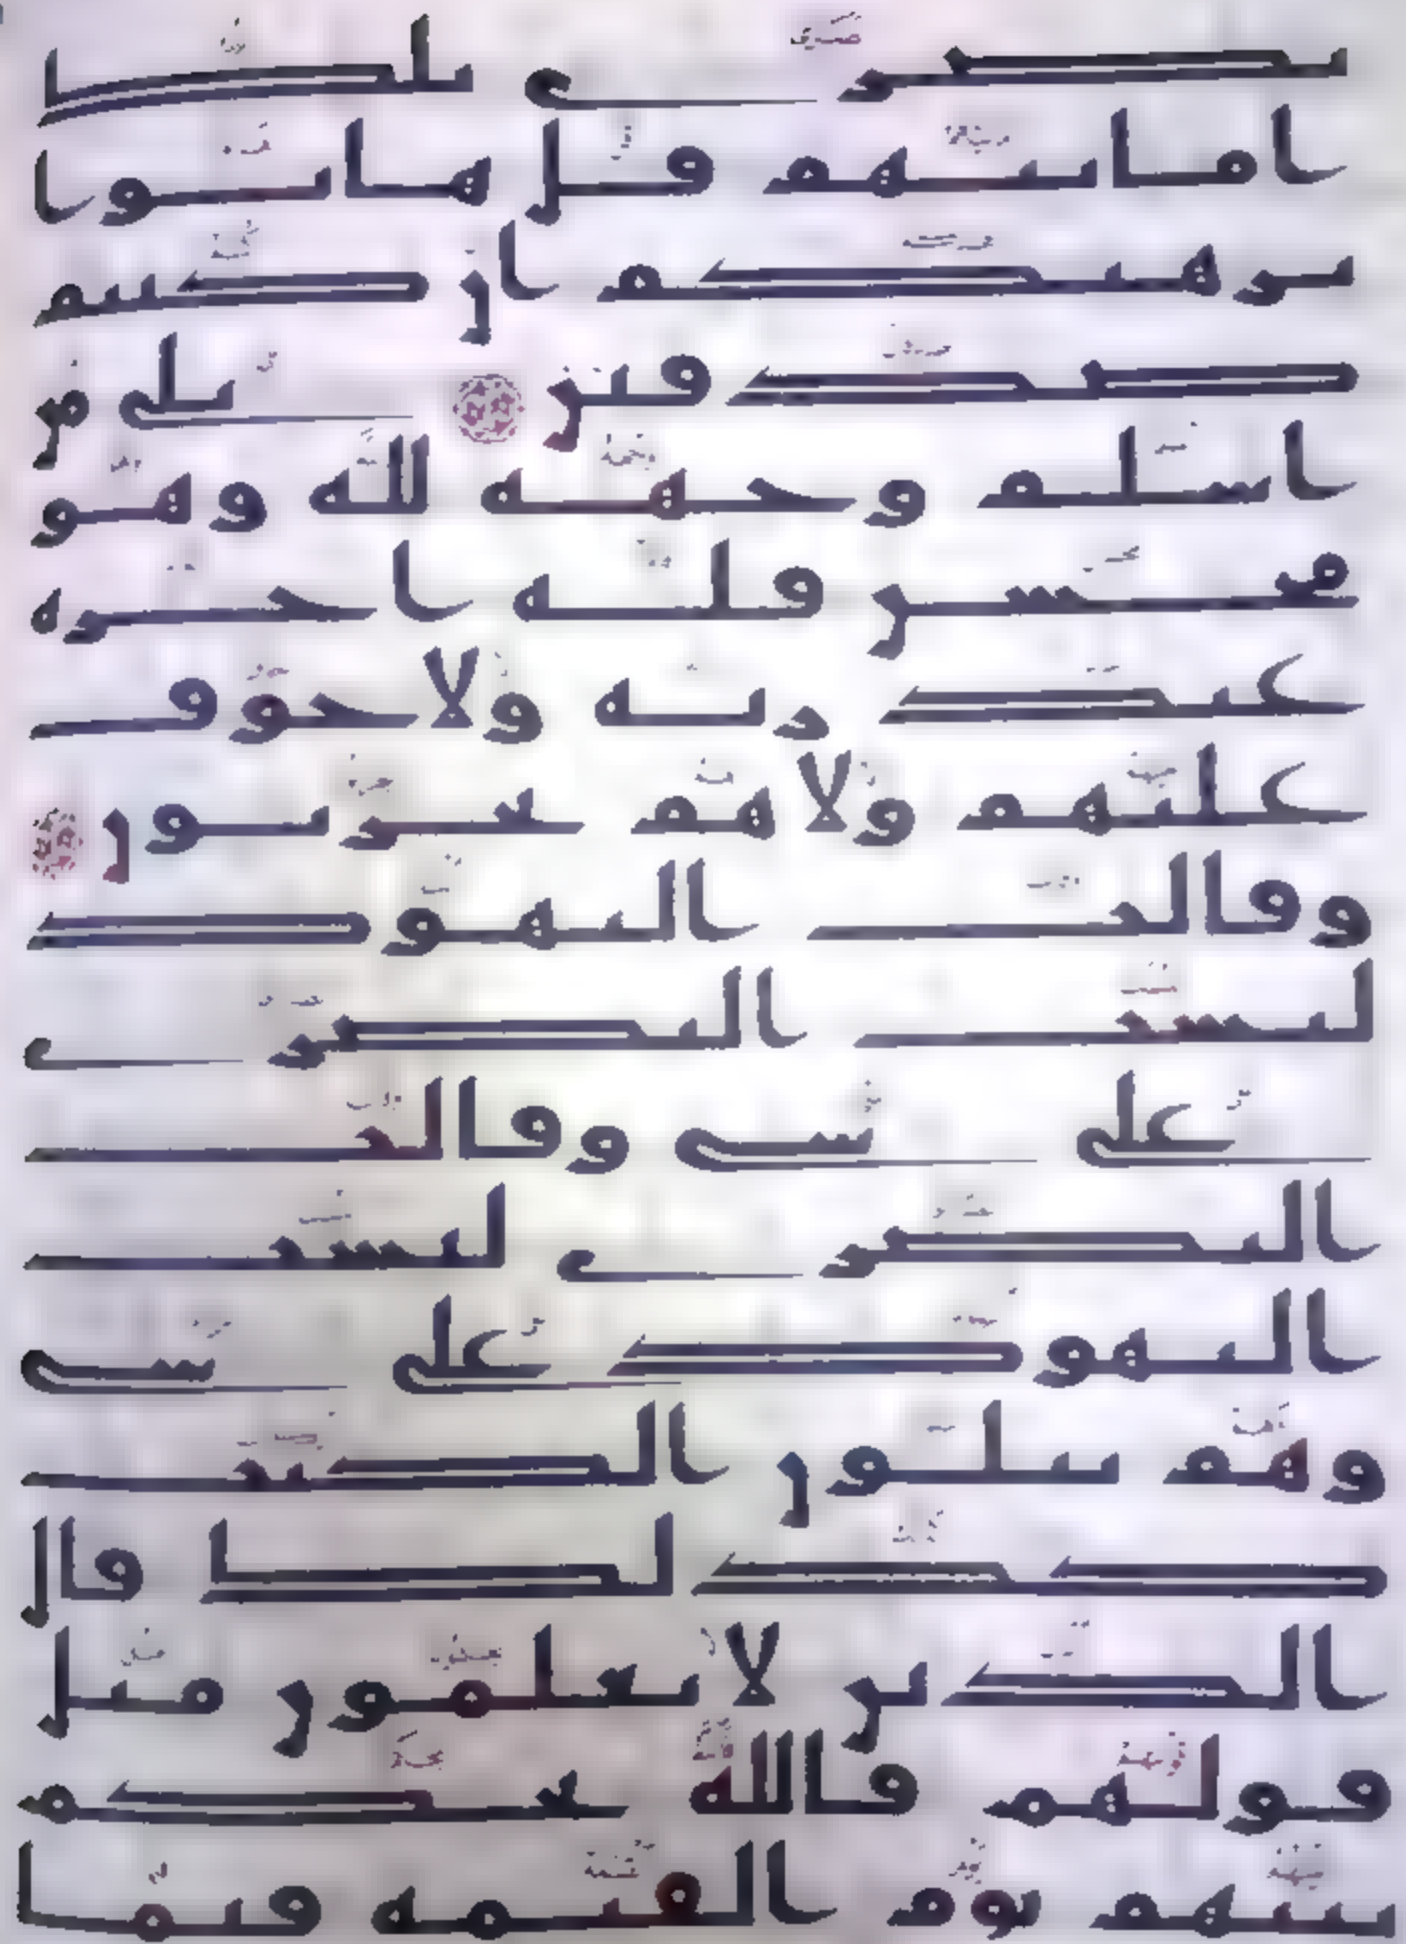 نصرى تلك
امانيهم قل هاتوا
برهنكم ان كنتم
صدقين بلى من
اسلم وجهه لله وهو
محسن فله اجره
عند ربه ولا خوف
عليهم ولا هم يحزنون
وقالت اليهود
ليست النصرى
على شى وقالت
النصرى ليست
اليهود على شى
وهم يتلون الكتب
كذلك قال
الذين لا يعلمون مثل
قولهم فالله يحكم
بينهم يوم القيمه فيما